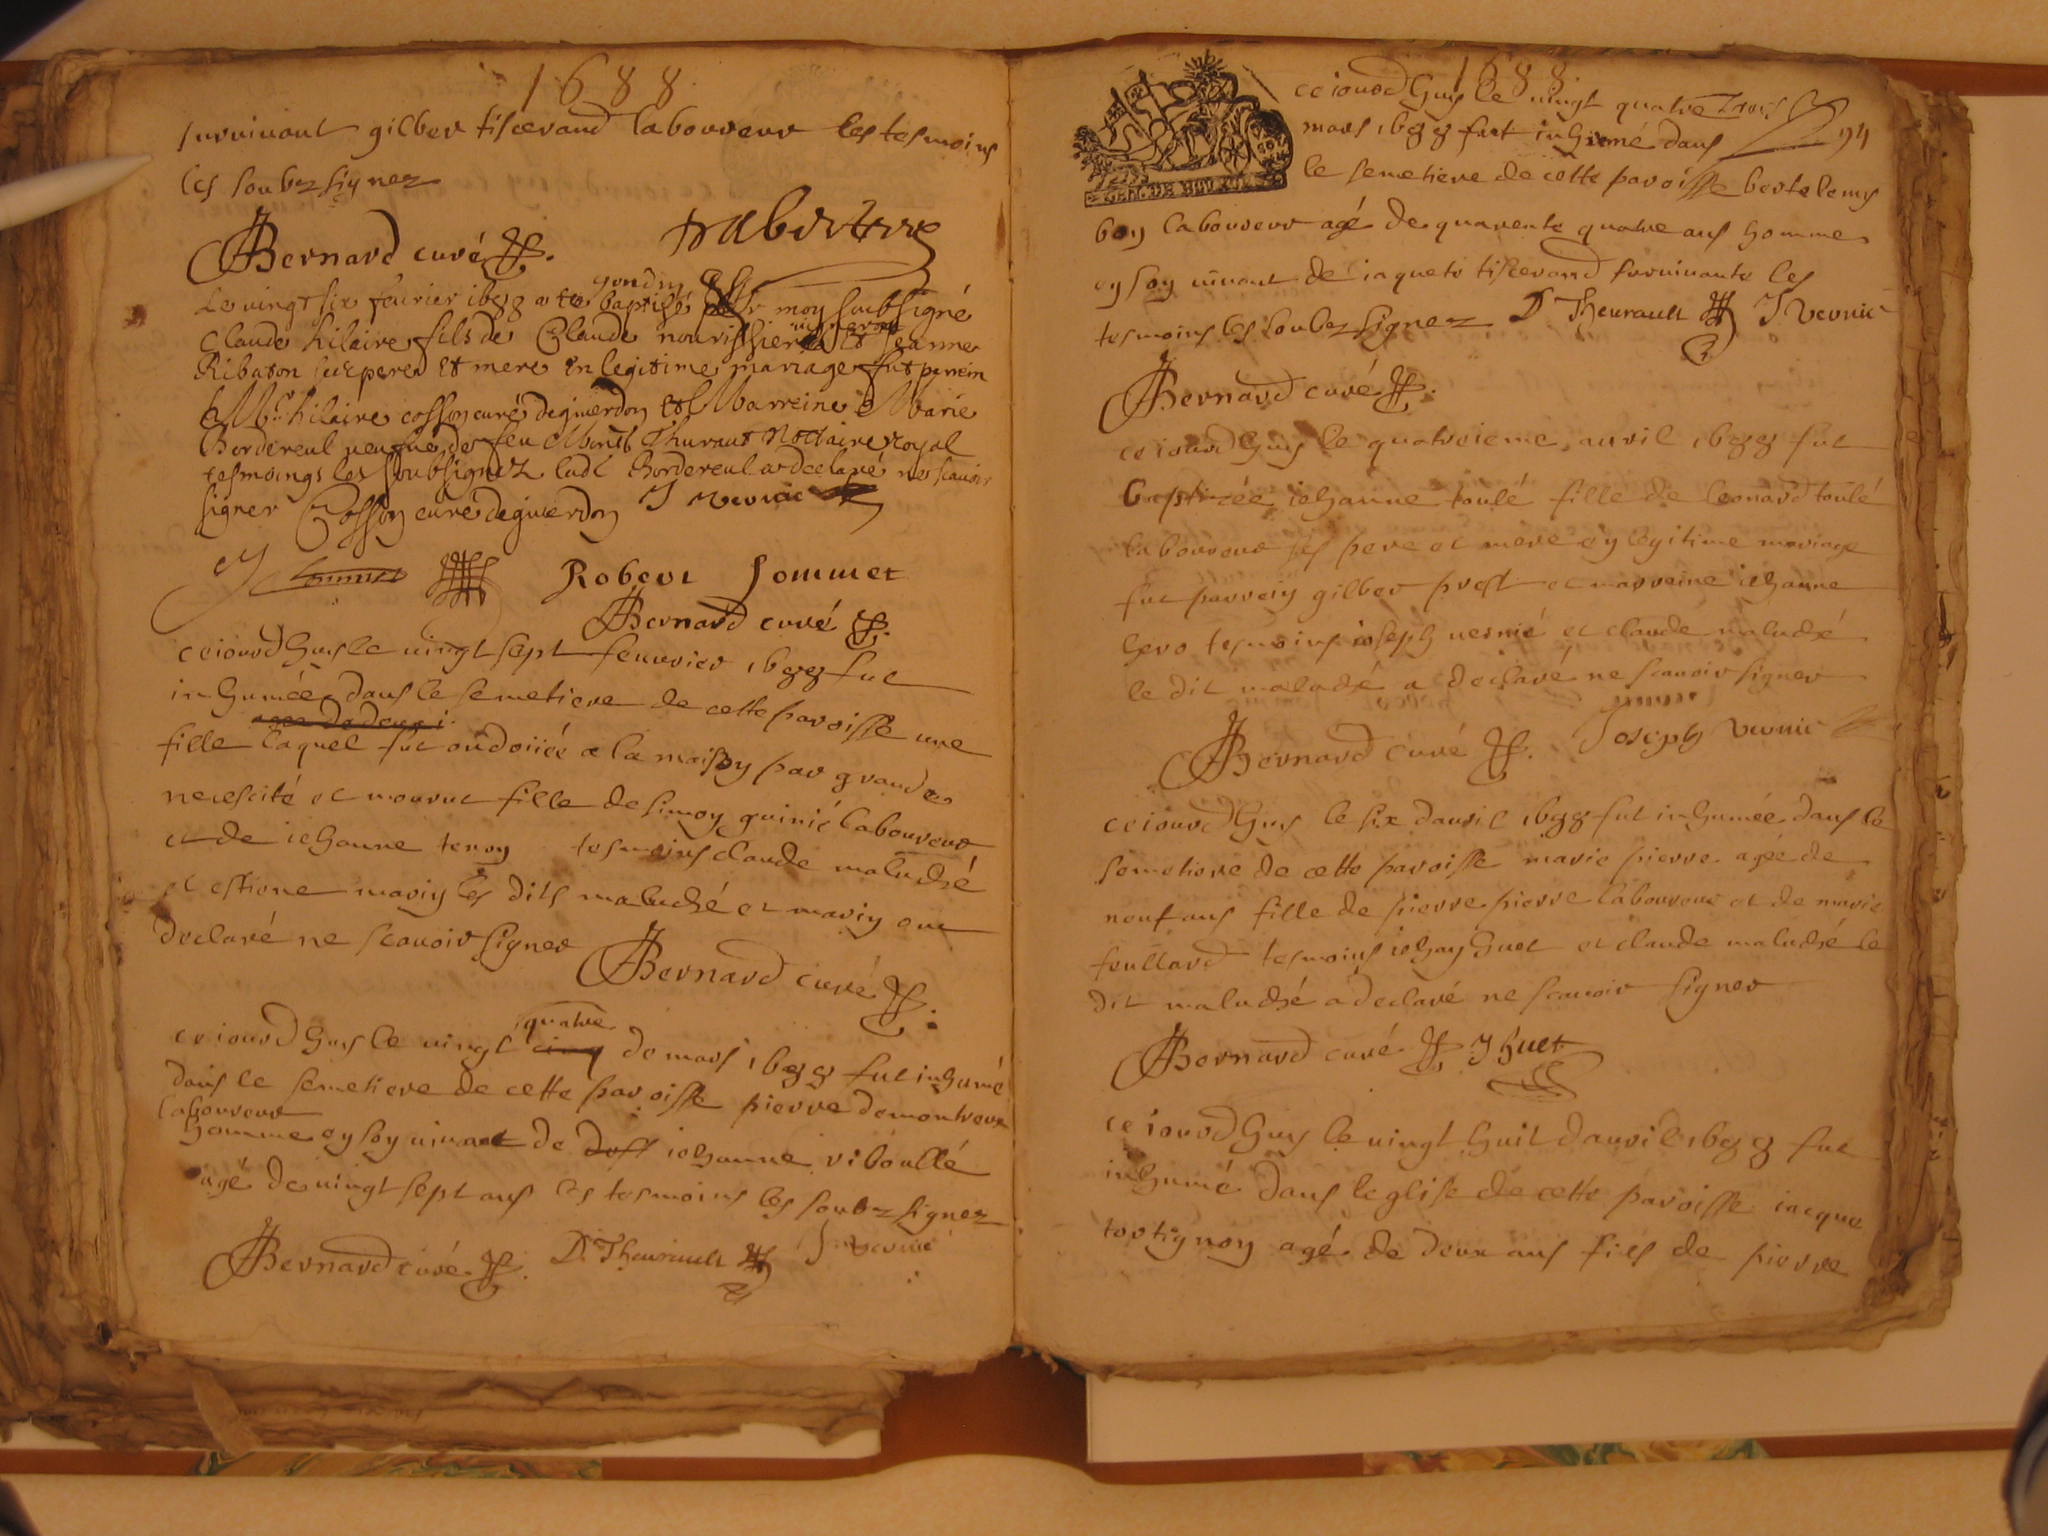 1688
survivant gilber tisserand laboureur les tesmoins
les soubz signez
Bernard curé
Le vingt six feurier 1688 a este baptisé par moy soubsigné
Claude hilaire fils de Claude nourissier et Jeanne
Ribaton ses pere et mere en legitime mariage fut parein
Mre hilaire cosson curé deguierdon et Marreine Marie
Bordereul veufue de feu Thuraut Nottaire royal
tesmoings les soubsignez ladt Bordereul a declaré ne scauoir
signer Cosson curé deguierdon J vernie
Robert Sommet
Bernard curé
ce iourd huy le uingt sept feuurier 1688 fut
inhumée dans le semetiere de cette paroisse une
fille laquel fut ondoiiée a la maison par grande
necescité et mourut fille de simon guinié laboureur
et de iehanne tenoy tesmoins claude maludzé
et estiene mariy les dits maludzé et mariy ont
declaré ne scauoir signer
Bernard curé
quatre
ce iourd huy le uingt cinq de mars 1688 fut inhumé
dans le semetiere de cette paroisse pierre demontreux
laboureur
homme ey soy uiuant de iehanne riboullé
agé de uingt sept ans les tesmoins les soubz signez
Bernard curé D. Theurault J vernié
1688
ce iourd huy le uingt quatre
94
mars 1688 fut inhumé dans
le semetiere de cette paroisse bertelemy
boy laboureur agé de quarente quatre ans homme
ey soy uiuant de iaquete tisserand suruiuante les
tesmoins les soubz signez D. Theurault J Vernie
Bernard curé
ce iourd huy le quatrieme auril 1688 fut
baptizée iehanne toulé fille de leonard toulé
laboureur ses pere et mere ey legitime mariage
fut parrein gilber prest et marreine iehanne
lero tesmoins ioseph uernié et claude maludzé
le dit maludzé a declaré ne scauoir signer
Bernard curé Joseph Vernie
ce iourd huy le six dauril 1688 fut inhumée dans le
semetiere de cette paroisse marie pierre agée de
neuf ans fille de pierre pierre laboureur et de marie
feullard tesmoins iehay huet et claude maludzé le
dit maludzé a declaré ne scauoir signer
Bernard curé J huet
ce iourd huy le uingt huit dauril 1688 fut
inhumé dans leglise de cette paroisse iacque
tortignoy agé de deux ans fils de pierre